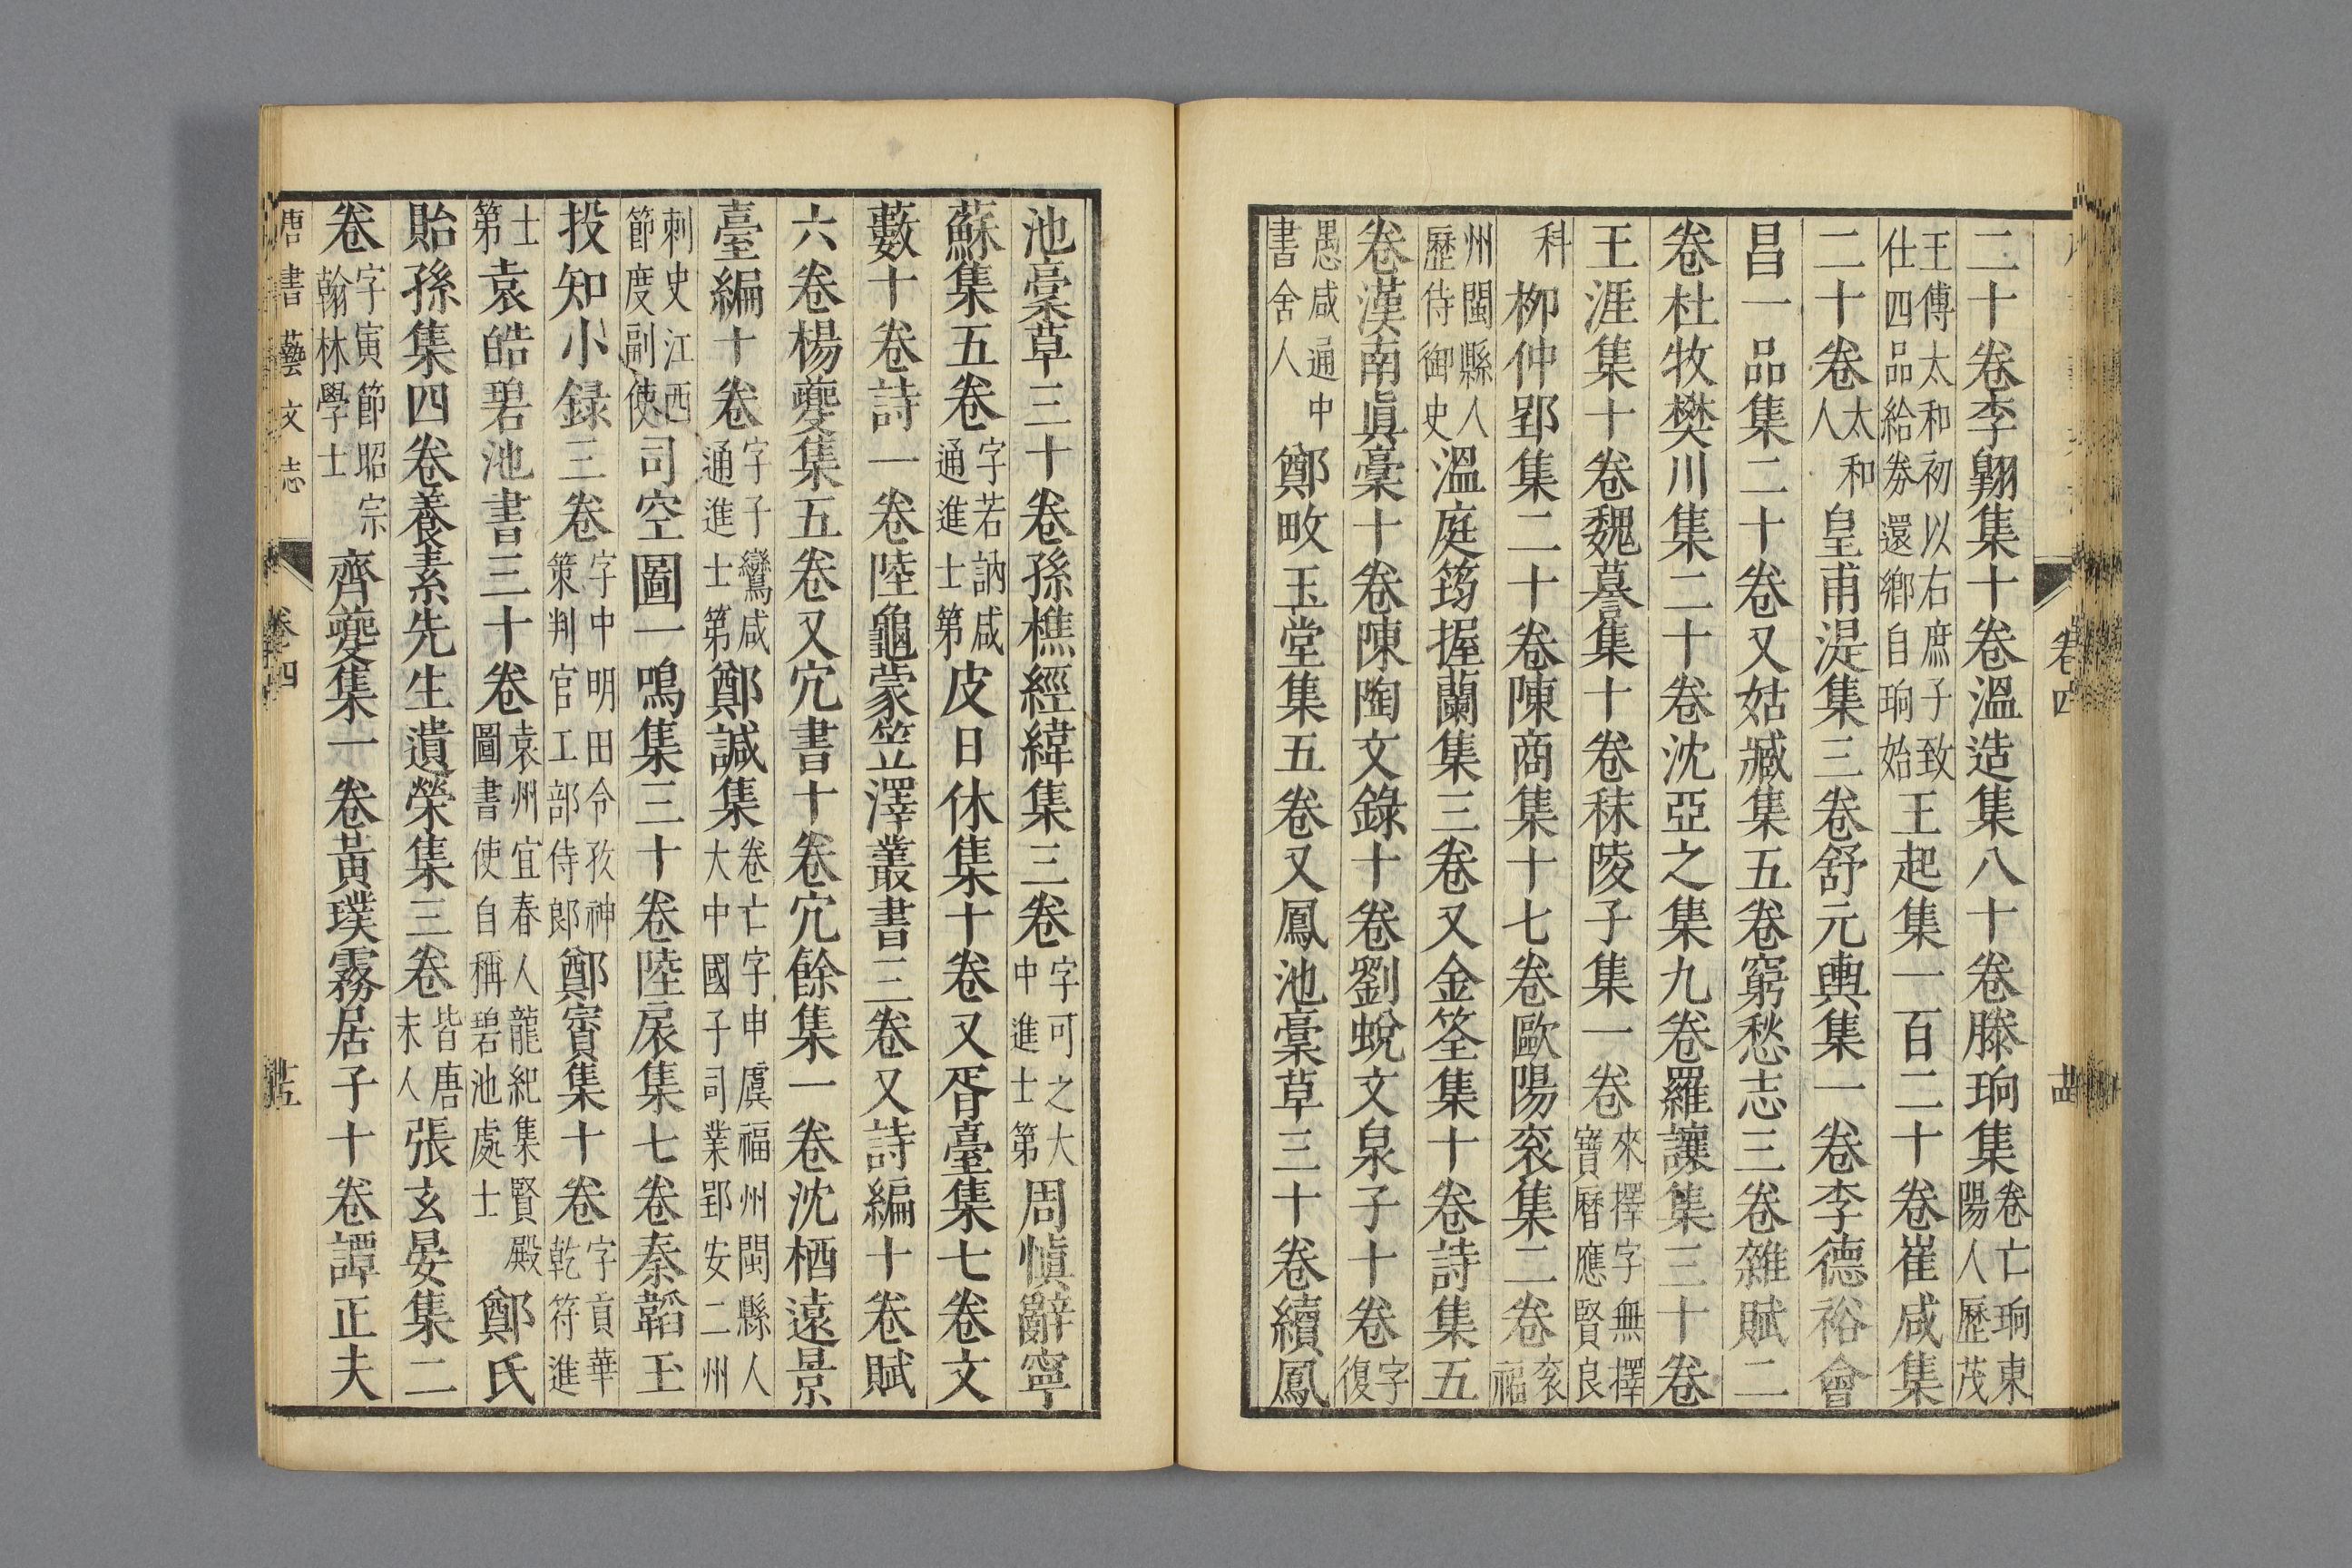 二十卷李翺集十卷溫造集八十卷滕珦集卷亡珦東陽人歷茂
王傅太和初以右庶子致仕四品給劵還鄉自珦始王起集一百二十卷崔咸集
二十卷太和人皇甫湜集三卷舒元輿集一卷李德裕會
昌一品集二十卷又姑臧集五卷窮愁志三卷雜賦二
卷杜牧樊川集二十卷沈亞之集九卷羅讓集三十卷
王涯集十卷魏謩集十卷秣陵子集一卷來擇字無擇寶曆應賢良
科柳仲郢集二十卷陳商集十七卷歐陽袞集二卷袞福
州閩縣人歷侍御史溫庭筠握蘭集三卷又金筌集十卷詩集五
卷漢南眞藁十卷陳陶文錄十卷劉蛻文泉子十卷字復
愚咸通中書舍人鄭畋玉堂集五卷又鳳池藁草三十卷續鳳
池藁草三十卷孫樵經緯集三卷字可之大中進士第周愼辭寧
蘇集五卷字若訥咸通進士第皮日休集十卷又胥臺集七卷文
藪十卷詩一卷陸龜蒙笠澤叢書三卷又詩編十卷賦
六卷楊夔集五卷又宂書十卷宂餘集一卷沈栖遠景
臺編十卷字子鸞咸通進士第鄭諴集卷亡字申虞福州閩縣人大中國子司業郢安二州
刺史江西節度副使司空圖一鳴集三十卷陸扆集七卷秦韜玉
投知小録三卷字中明田令孜神策判官工部侍郎鄭賓集十卷字貢華乾符進
士第袁皓碧池書三十卷袁州宜春人龍紀集賢殿圖書使自稱碧池處士鄭氏
貽孫集四卷養素先生遺榮集三卷皆唐末人張玄晏集二
卷字寅節昭宗翰林學士齊夔集一卷黃璞霧居子十卷譚正夫
唐書藝文志 卷四